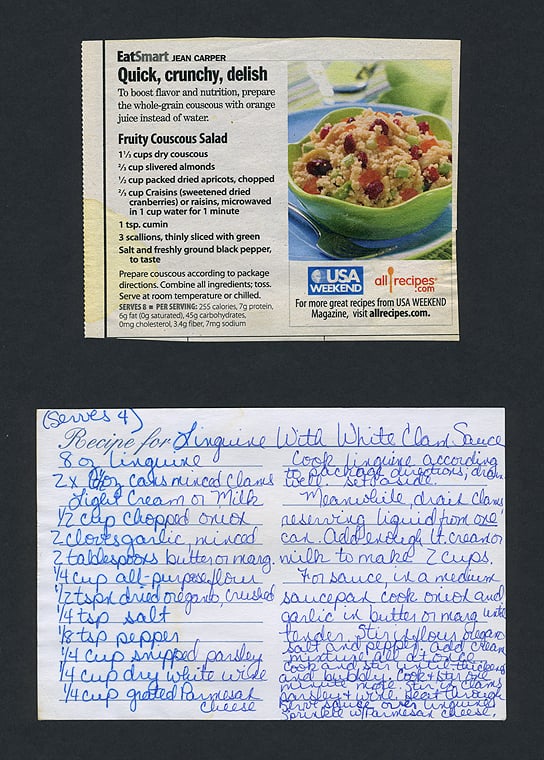 EatSmart JEAN CARPER
Quick, crunchy, delish
To boost flavor and nutrition, prepare
the whole-grain couscous with orange
juice instead of water.
Fruity Couscous Salad
1⅓ cups dry couscous
⅔ cup slivered almonds
½ cup packed dried apricots, chopped
⅔ cup Craisins (sweetened dried
cranberries) or raisins, microwaved
in 1 cup water for 1 minute
1 tsp. cumin
3 scallions, thinly sliced with green
Salt and freshly ground black pepper,
to taste
Prepare couscous according to package
directions. Combine all ingredients; toss.
Serve at room temperature or chilled.
SERVES 8 ■ PER SERVING: 255 calories, 7g protein,
6g fat (0g saturated), 45g carbohydrates,
0mg cholesterol, 3.4g fiber, 7mg sodium
USA
WEEKEND
allrecipes
.com
For more great recipes from USA WEEKEND
Magazine, visit allrecipes.com.
(Serves 4)
Recipe for Linguine With White Clam Sauce
8 oz linguine
2 x oz cans minced clams
Light Cream or Milk
1/2 cup chopped onion
2 cloves garlic, minced
2 tablespoons butter or marg.
1/4 cup all-purpose flour
1/2 tspn dried oregano, crushed
1/4 tsp salt
1/8 tsp pepper
1/4 cup snipped parsley
1/4 cup dry white wine
1/4 cup grated Parmesan
cheese
Cook linguine according
to package directions; drain
well. set aside.
Meanwhile, drain clams
reserving liquid from one
can. Add enough lt. cream or
milk to make 2 cups.
For sauce, in a medium
saucepan cook onion and
garlic in butter or marg until
tender. Stir in flour, oregano
salt and pepper. add cream
mixture all at once.
Cook and stir until thickened
and bubbly. Cook & stir one
minute more. Stir in clams
parsley & wine. Heat through
Serve sauce over linguine
Sprinkle w/Parmesan cheese.